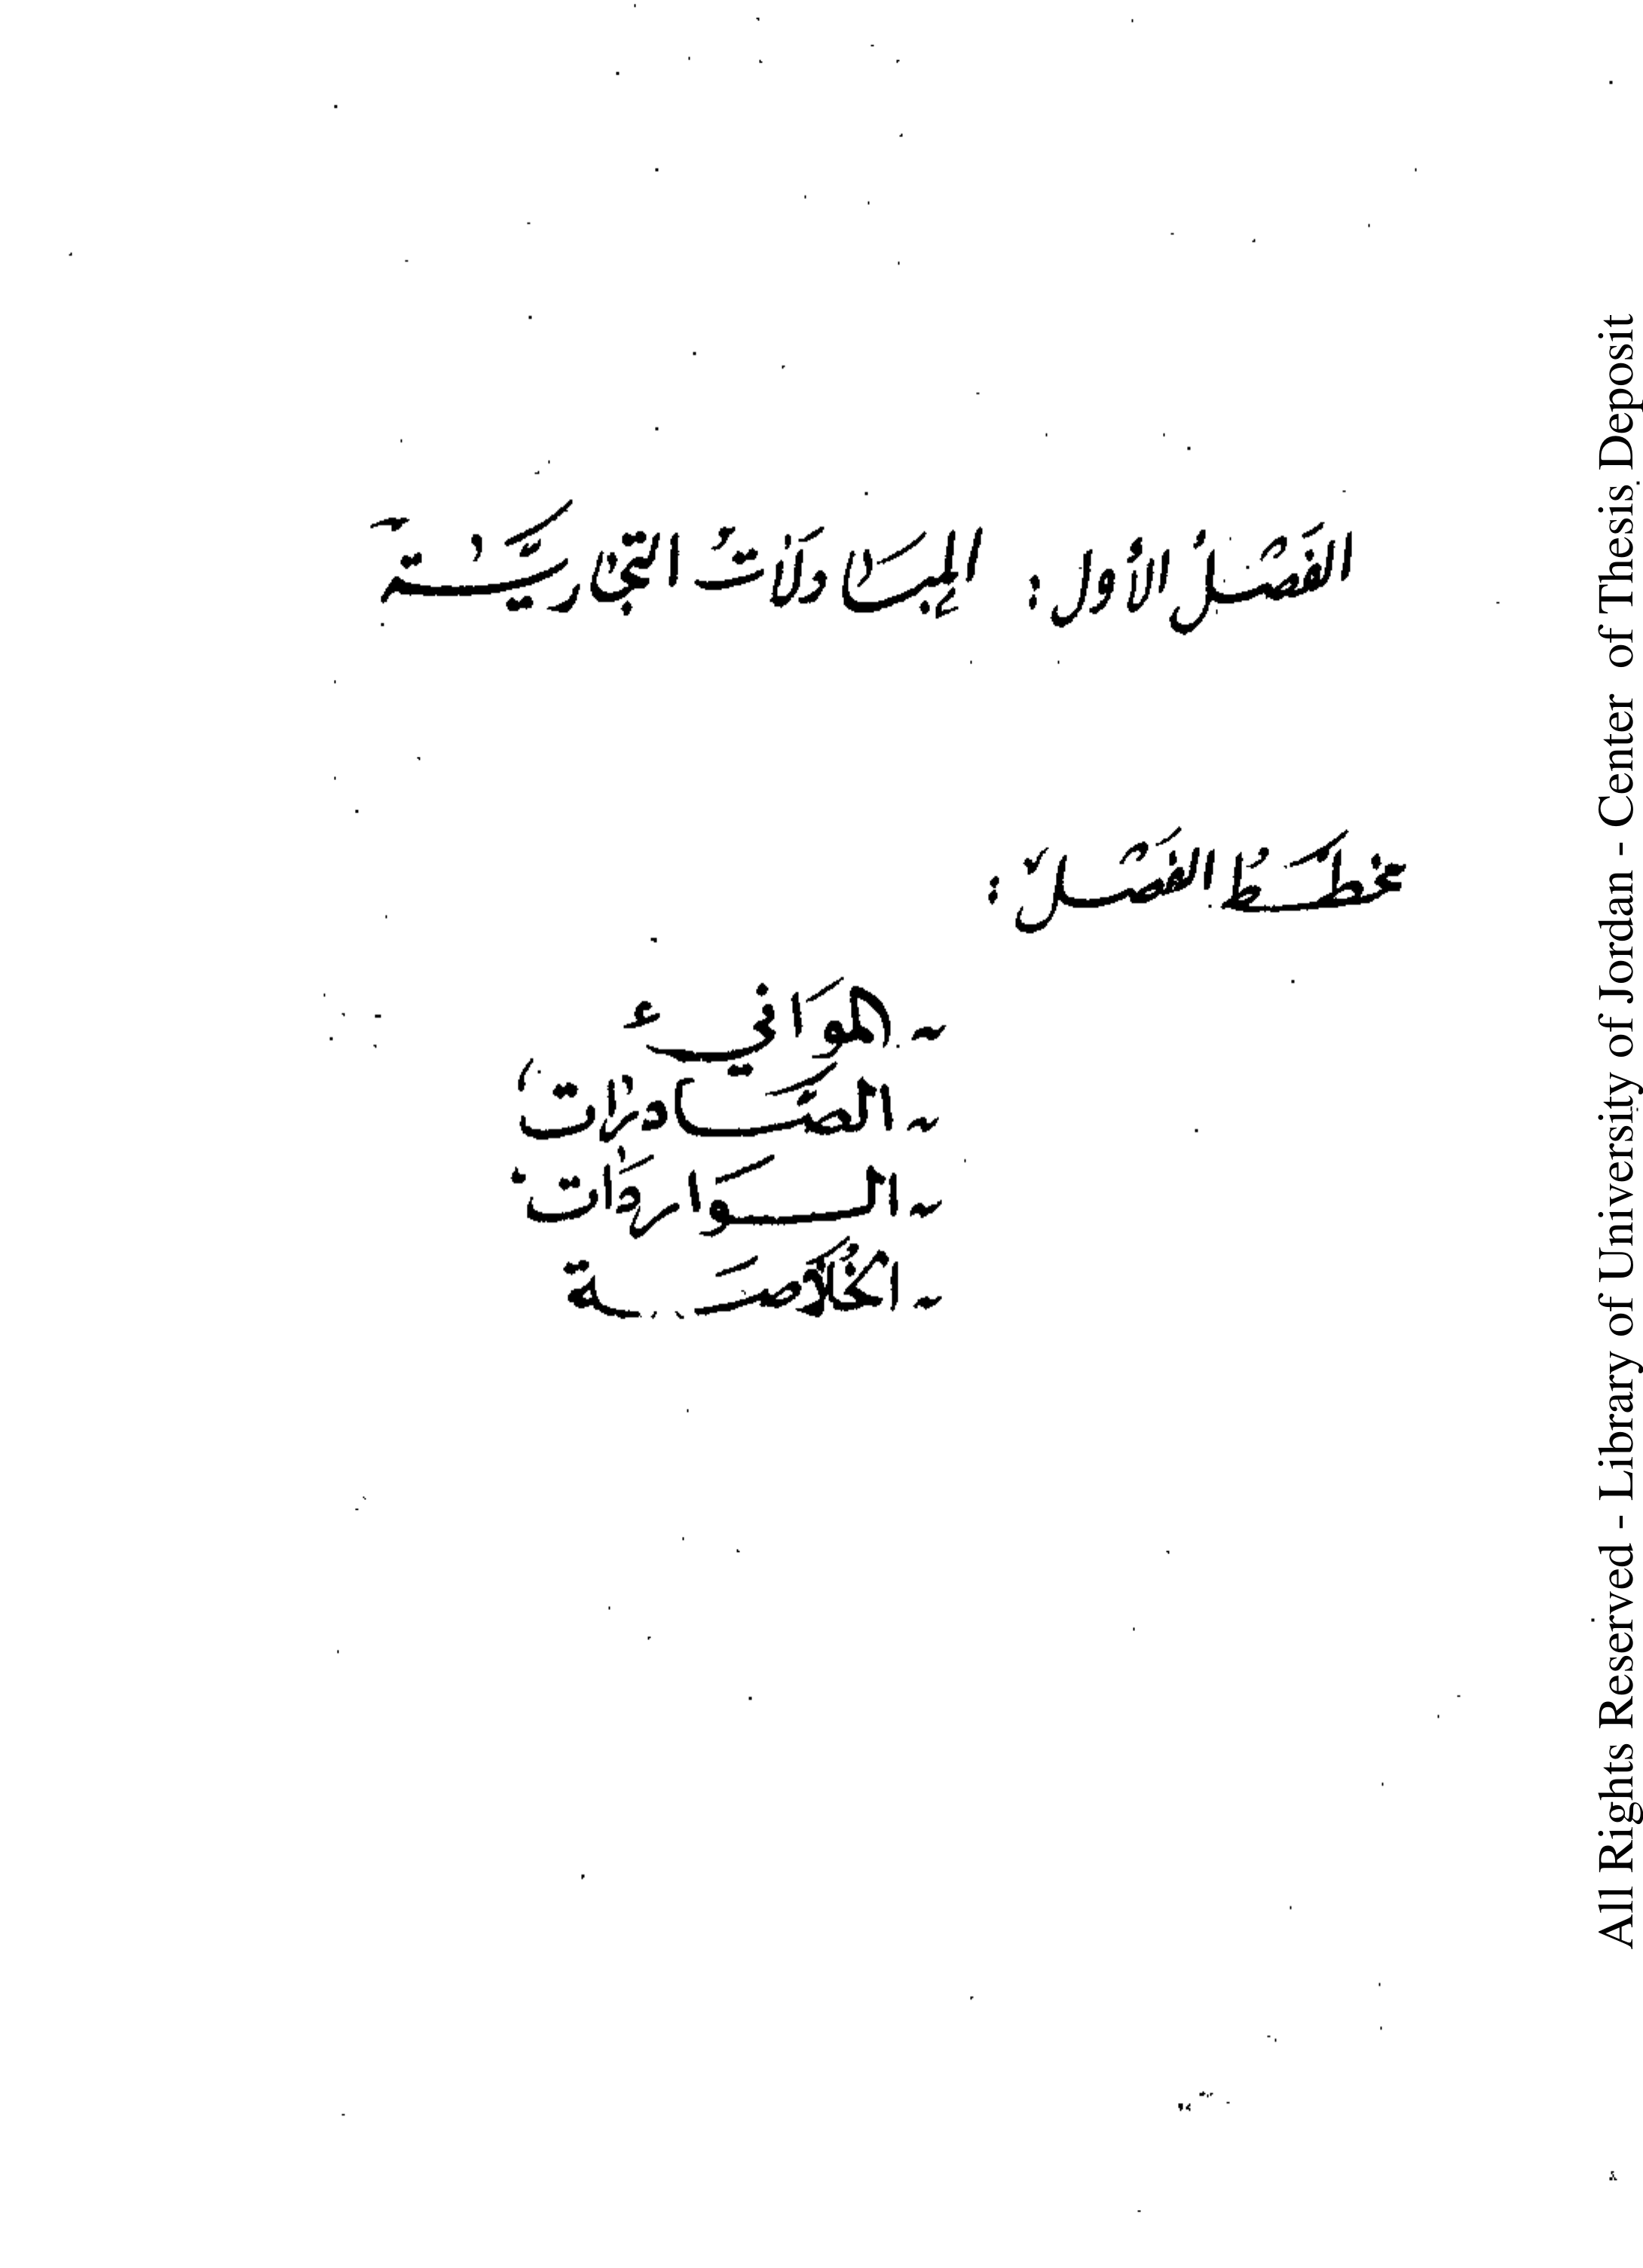 الفصل الأول: المبادلات التجارية
مخطط الفصل:
- الموانيء
- الصادرات
- الواردات
- الخلاصة
All Rights Reserved - Library of University of Jordan - Center of Thesis Deposit